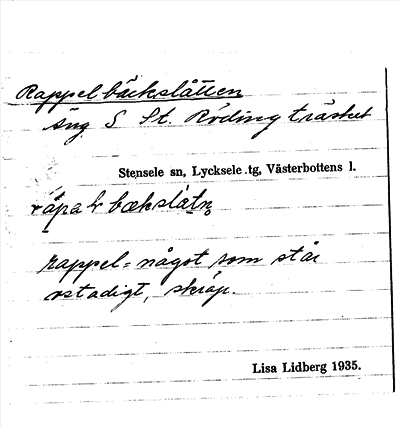 Rappelbäckslåtten
äng S St. Rödingträsket
Stensele sn, Lycksele tg, Västerbottens l.
rappel = något som står
ostadigt, skräp.
Lisa Lidberg 1935.